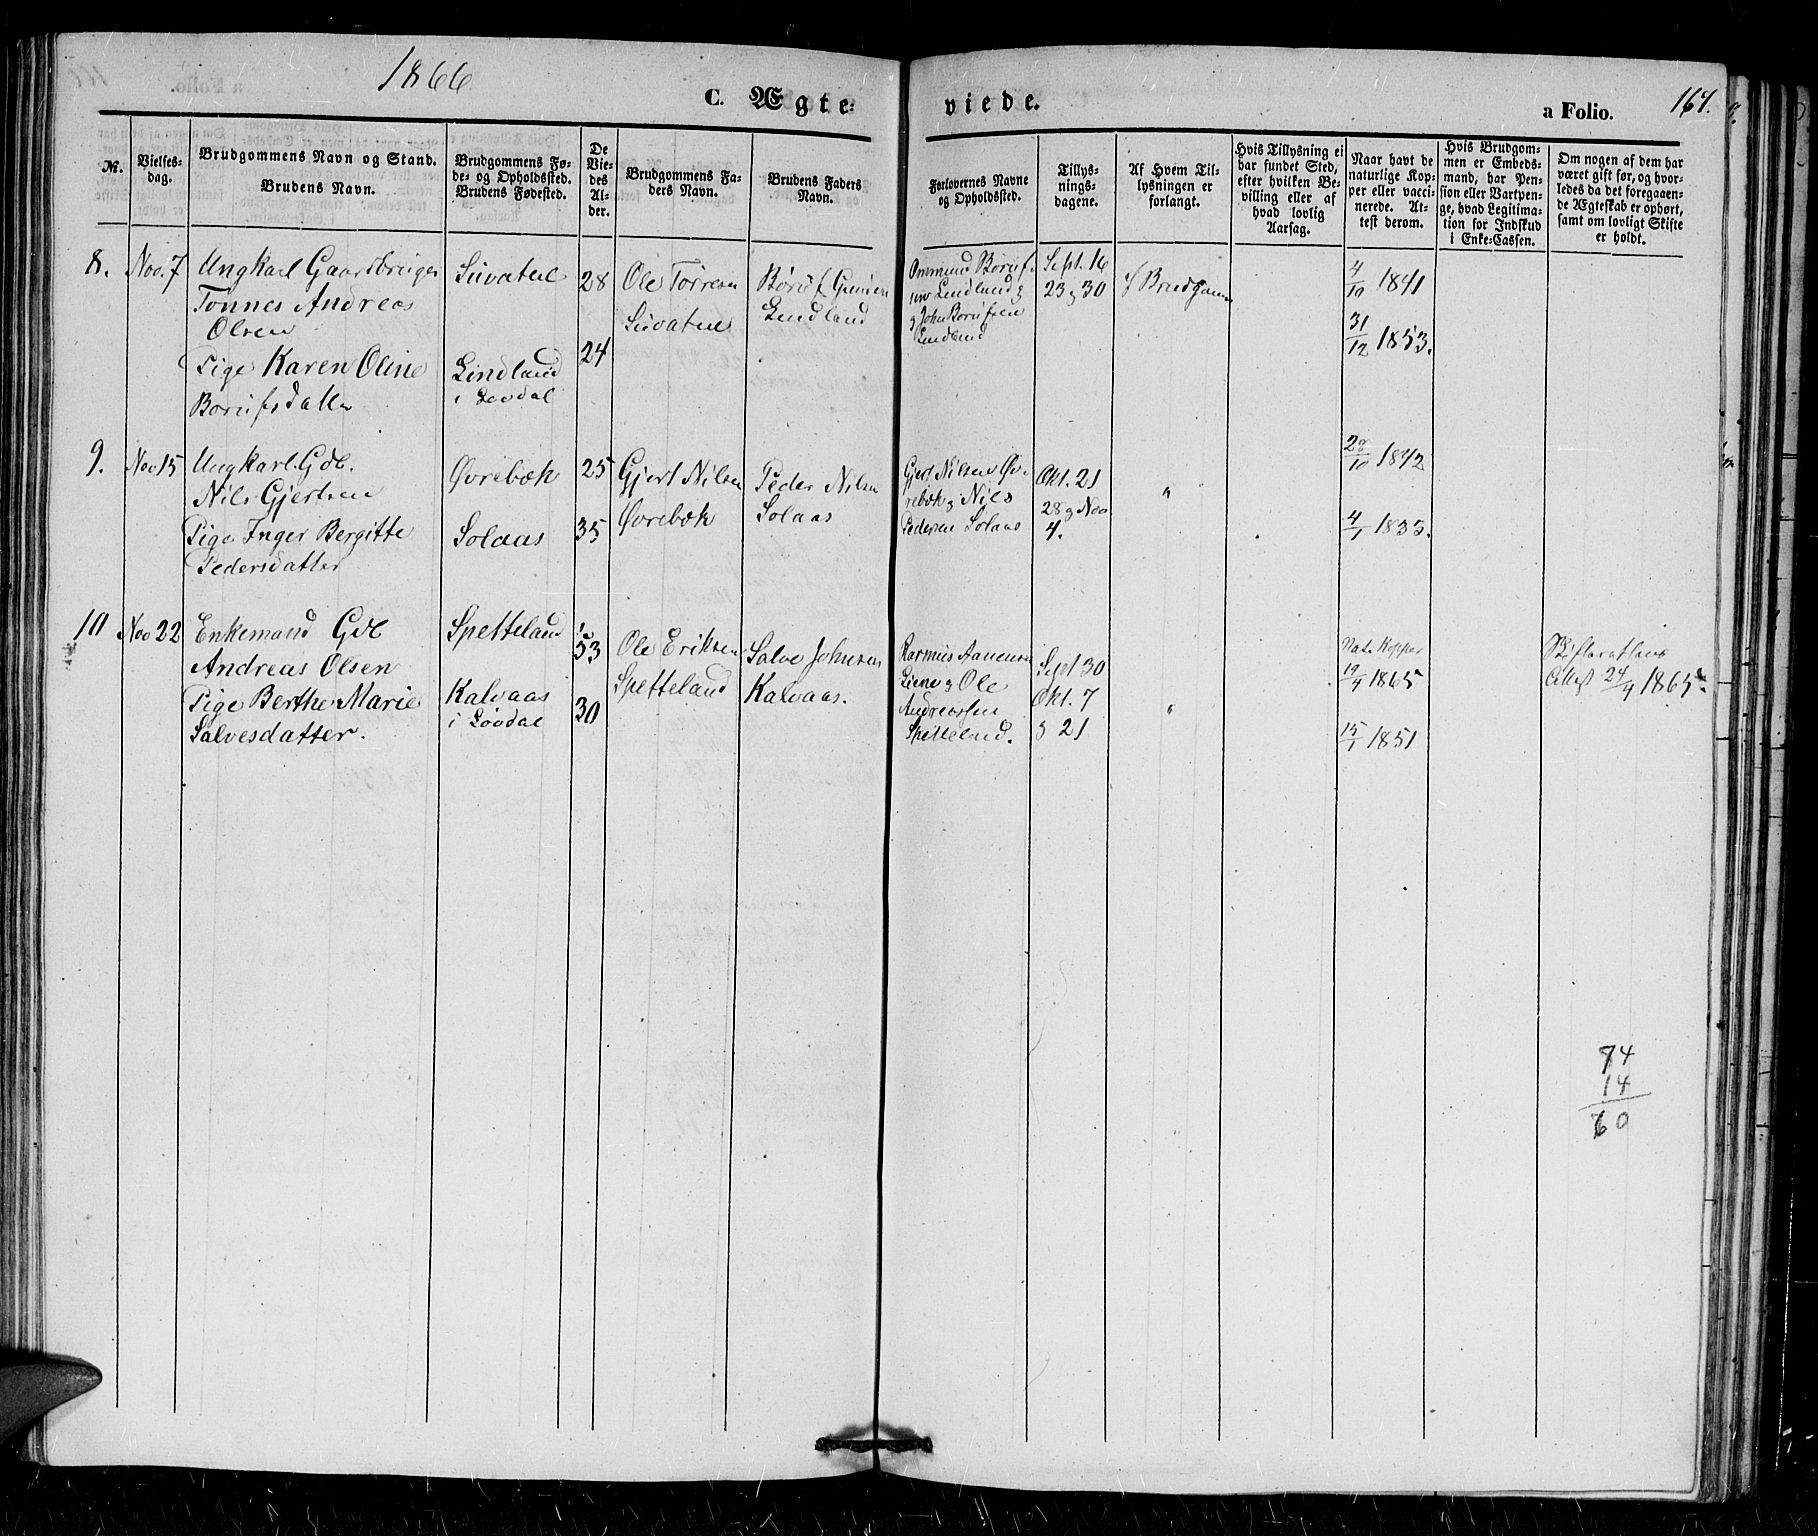 1866
C. Ægte-
viede.
a Folio.
167.
№.
Vielses-
dag.
Brudgommens Navn og Stand.
Brudens Navn.
Brudgommens Fø-
de- og Opholdssted.
Brudens Fødested.
De
Vie-
des
Al-
der.
Brudgommens Fa-
ders Navn.
Brudens Faders
Navn.
Forlovernes Navne
og Opholdssted.
Tillys-
nings-
dagene.
Af Hvem Til-
lysningen er
forlangt.
Hvis Tillysning ei
har fundet Sted,
efter hvilken Be-
villing eller af
hvad lovlig
Aarsag.
Naar havt de
naturlige Kop-
per eller vacci-
nerede. At-
test derom.
Hvis Brudgom-
men er Embeds-
mand, har Pen-
sion eller Vartpen-
ge, hvad Legitima-
tion for Indskud
i Enke-Cassen.
Om nogen af dem har
været gift før, og hvor-
ledes da det foregaaen-
de Ægteskab er ophørt,
samt om lovligt Skifte
er holdt.
8.
Nov. 7
Ungkarl Gaardbruger
Tonnes Andreas
Olsen
Pige Karen Oline
Borufsdatter
Lindland
i Løvdal
28
24
Ole Torresen
Boruf
Lindland
Ommund Boruf-
Lindland
og John Borufsen
Lindland
Sept. 16
23 og 30
Brudgommen
4/10 1841
31/12 1853.
9.
Nov 15
Ungkarl. Gdb.
Nils Gjertsen
Pige Inger Bergitte
Pedersdatter
Øvrebøk
Solaas
25
35
Gjert Nilsen
Øvrebøk
Peder Nilsen
Solaas
Gjert Nilsen Øv-
rebøk og Nils
Pedersen Solaas
Okt. 21
28 og Nov
4.
"
28/10 1842
4/1 1833.
10
Nov 22
Enkemand Gdb
Andreas Olsen
Pige Berthe Marie
Salvesdatter.
Spetteland
Kalvaas
i Løvdal
53
30
Ole Eriksen
Spetteland
Salve Johnsen
Kalvaas.
Rasmus Aanensen
Liene og Ole
Andreassen
Spetteland.
Sept 30
Okt. 7
og 21
"
Nat. Kopper
19/4 1865
15/1 1851
Skifteretten's
Attest 24/4 1865.
74
14
60